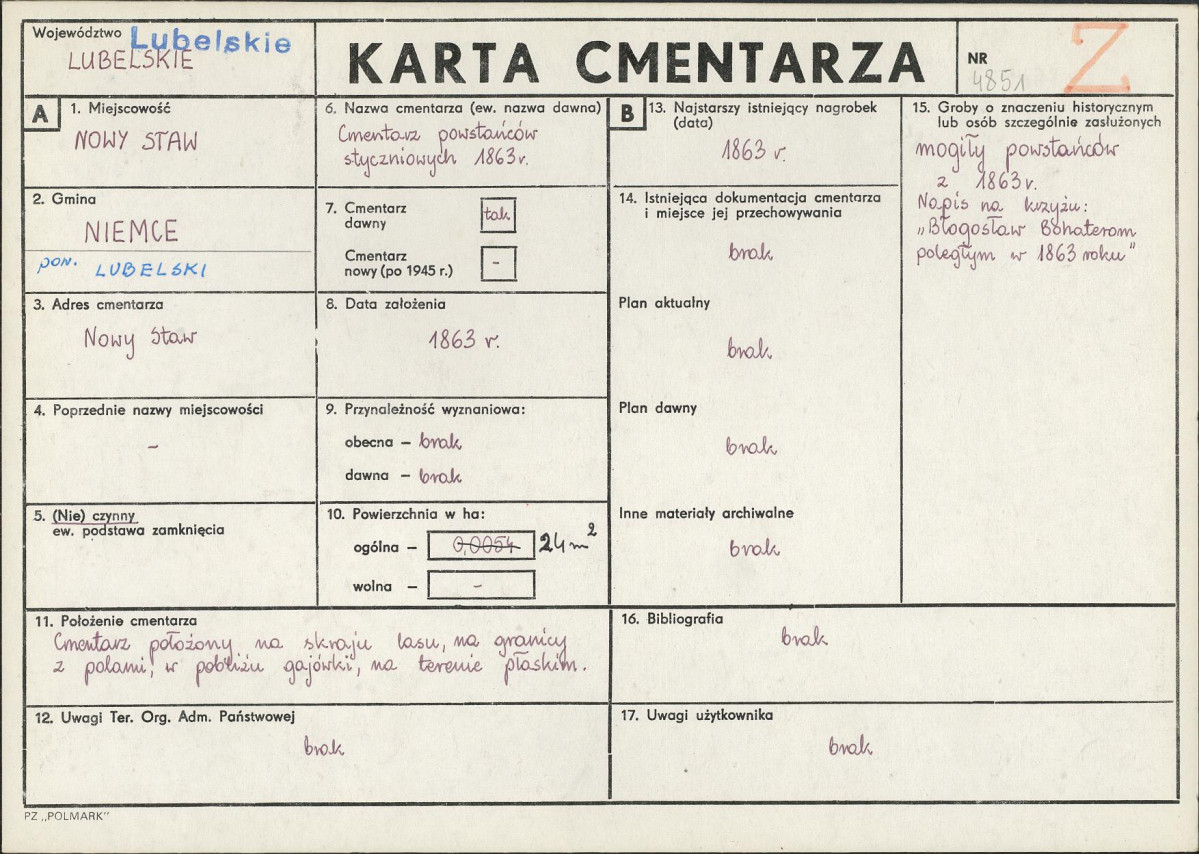 Województwo Lubelskie
LUBELSKIE
KARTA CMENTARZA
NR
4851
Z
A
1. Miejscowość
NOWY STAW
2. Gmina
NIEMCE
pow. LUBELSKI
3. Adres cmentarza
Nowy Staw
4. Poprzednie nazwy miejscowości
–
5. (Nie) czynny
ew. podstawa zamknięcia
6. Nazwa cmentarza (ew. nazwa dawna)
Cmentarz powstańców
styczniowych 1863 r.
7. Cmentarz
dawny
tak
Cmentarz
nowy (po 1945 r.)
-
8. Data założenia
1863 r.
9. Przynależność wyznaniowa:
obecna – brak
dawna – brak
10. Powierzchnia w ha:
ogólna – 0,0054 24 m²
wolna – –
B
13. Najstarszy istniejący nagrobek
(data)
1863 r.
14. Istniejąca dokumentacja cmentarza
i miejsce jej przechowywania
brak
Plan aktualny
brak
Plan dawny
brak
Inne materiały archiwalne
brak
15. Groby o znaczeniu historycznym
lub osób szczególnie zasłużonych
mogiły powstańców
z 1863 r.
Napis na krzyżu:
„Błogosław Bohaterom
poległym w 1863 roku"
11. Położenie cmentarza
Cmentarz położony na skraju lasu, na granicy
z polami, w pobliżu gajówki, na terenie płaskim.
12. Uwagi Ter. Org. Adm. Państwowej
brak
16. Bibliografia
brak
17. Uwagi użytkownika
brak
PZ „POLMARK"